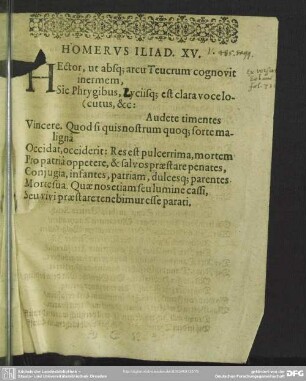 HOMERVS ILIAD. XV.
HEctor, ut absq; arcu Teucrum cognovit
inermem,
Sic Phrygibus, Lyciisq; est clara voce lo-
cutus, &c:
Audete timentes
Vincere. Quod si quis nostrum quoq; sorte ma-
ligna
Occidat, occiderit: Res est pulcerrima, mortem
Pro patria oppetere, & salvos præstare penates,
Conjugia, infantes, patriam, dulcesq; parentes
Morte sua. Quæ nos etiam seu lumine cassi,
Seu vivi præstare tenebimur esse parati.